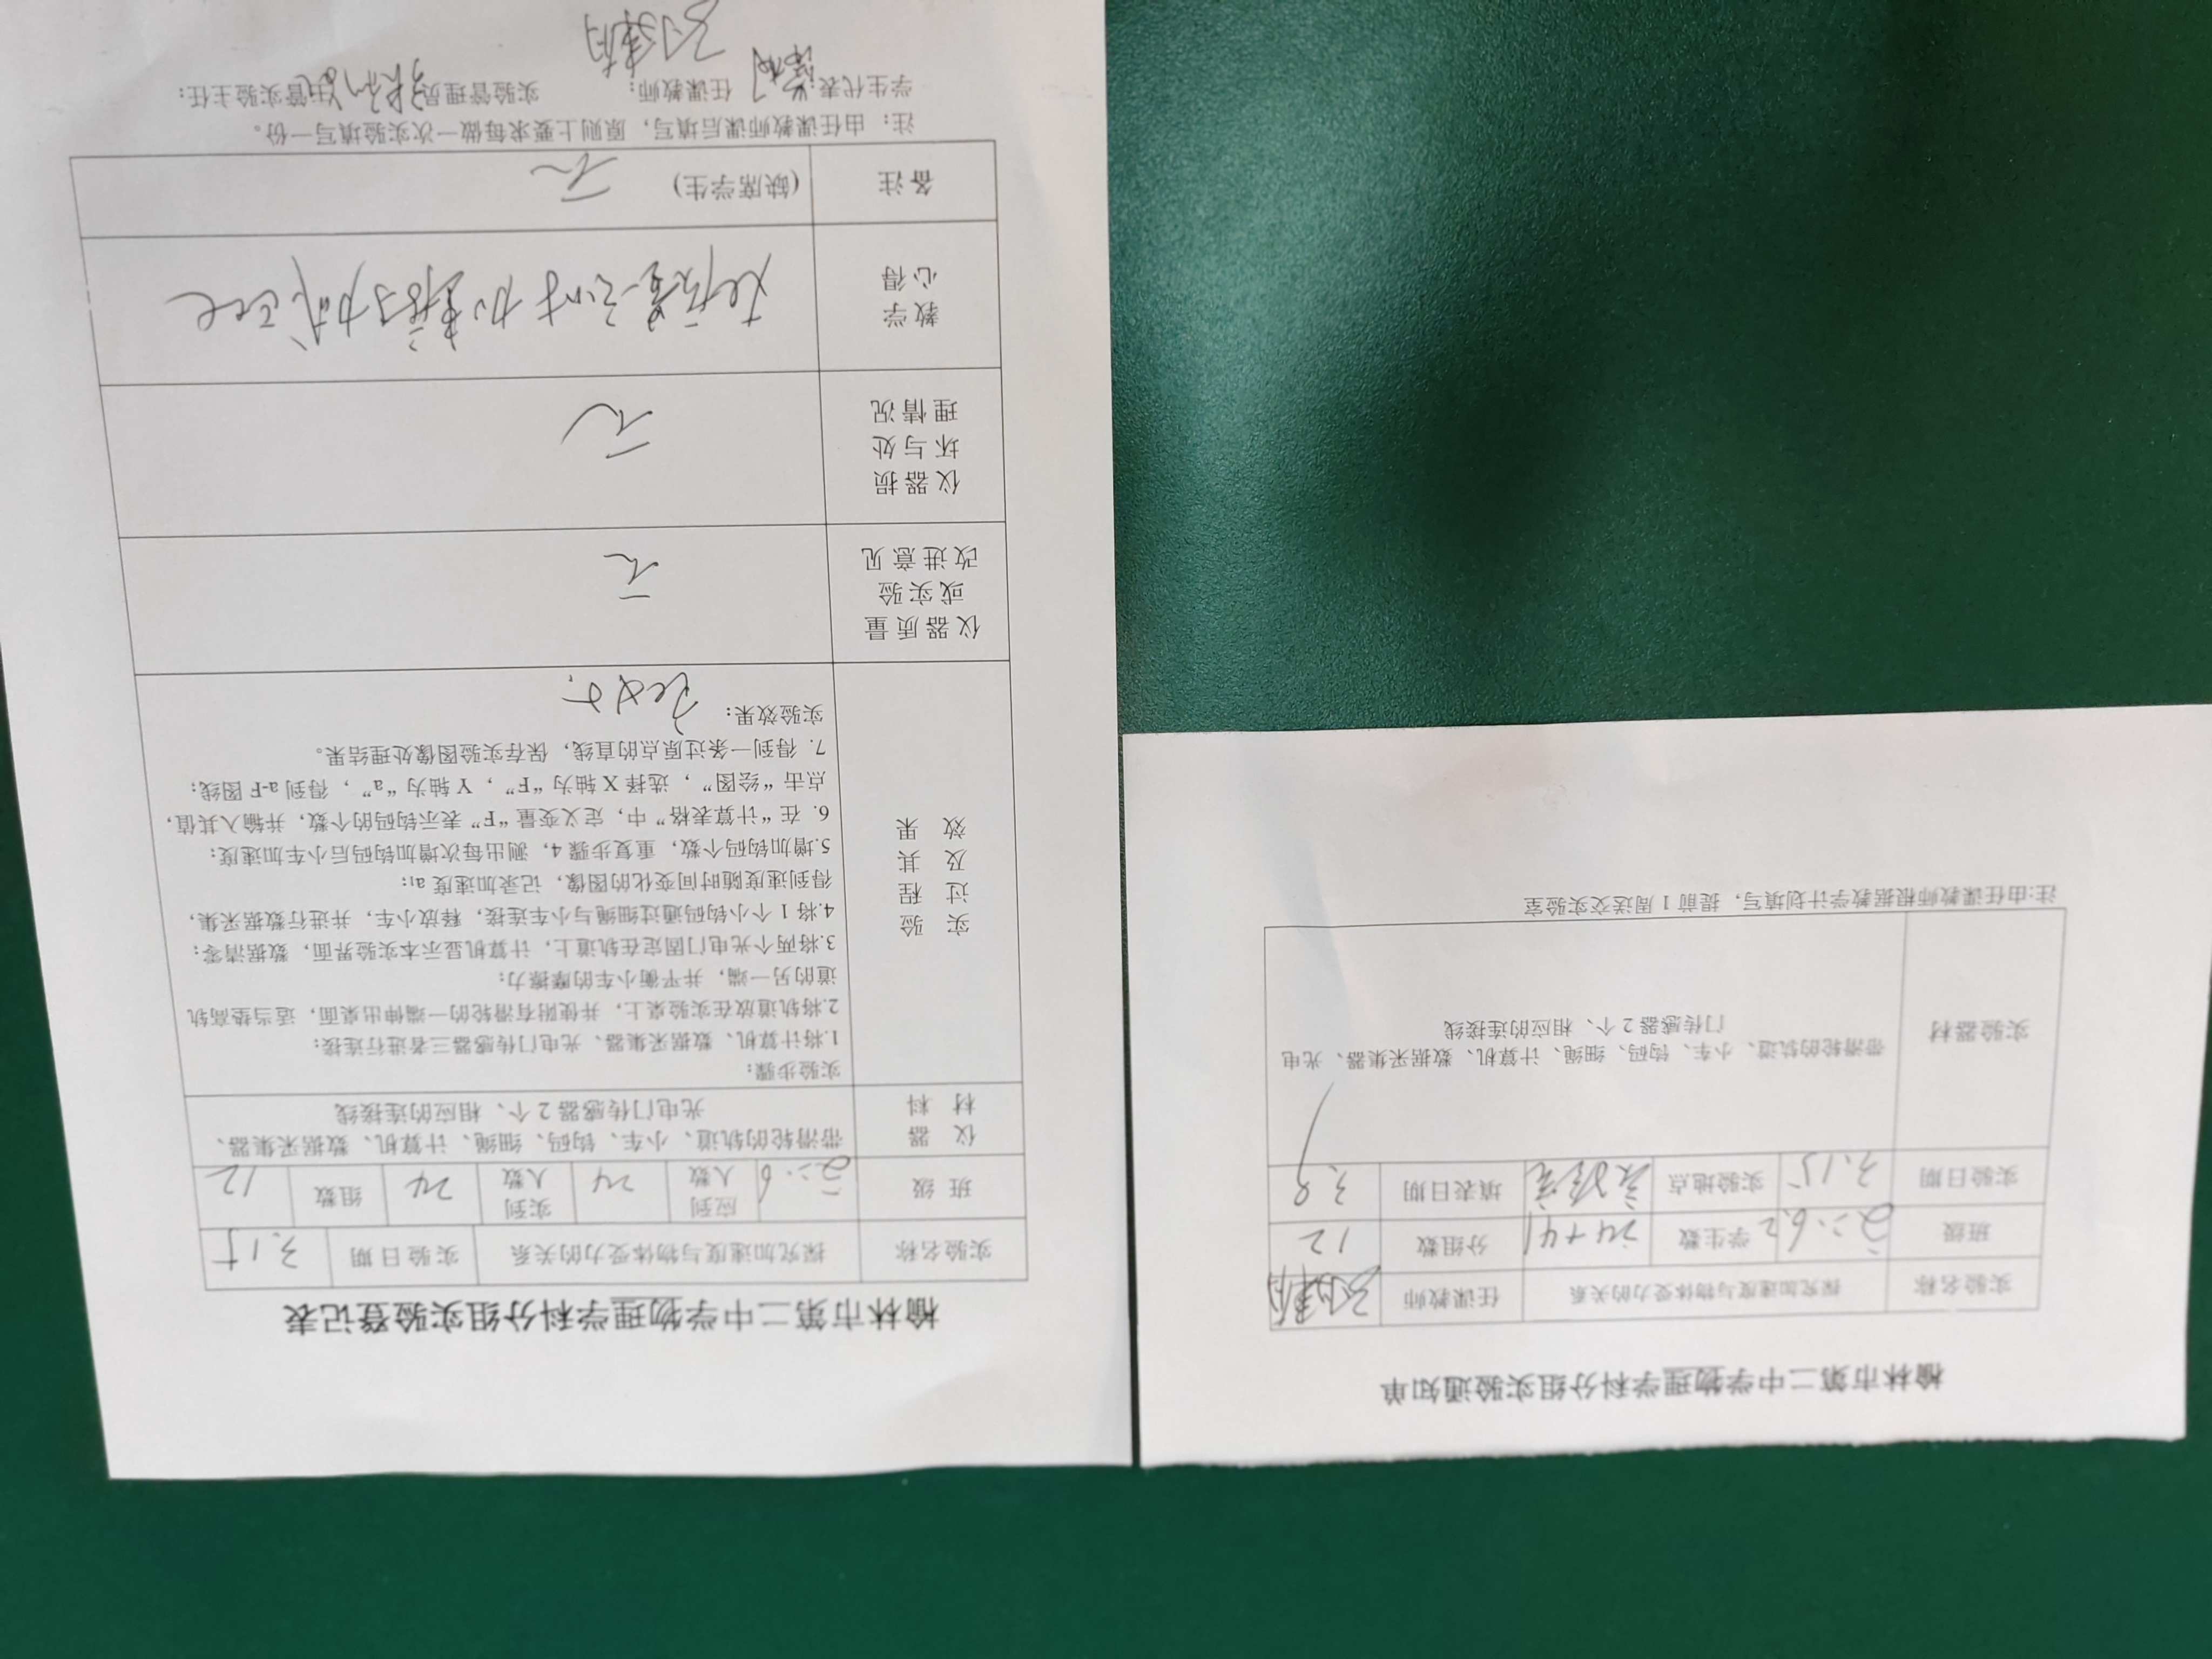 榆林市第二中学物理学科分组实验登记表
实验名称 探究加速度与物体受力的关系 实验日期 3.15
班级 应到人数 24 实到人数 24 组数 12
仪器材料 带滑轮的轨道、小车、钩码、细绳、计算机、数据采集器、
光电门传感器 2 个、相应的连接线
实验过程及其效果
实验步骤:
1.将计算机、数据采集器、光电门传感器三者进行连接;
2.将轨道放在实验桌上,并使附有滑轮的一端伸出桌面,适当垫高轨
道的另一端,并平衡小车的摩擦力;
3.将两个光电门固定在轨道上,计算机显示本实验界面,数据清零;
4.将 1 个小钩码通过细绳与小车连接,释放小车,并进行数据采集,
得到速度随时间变化的图像,记录加速度 a₁;
5.增加钩码个数,重复步骤 4,测出每次增加钩码后小车加速度;
6. 在“计算表格”中,定义变量“F”表示钩码的个数,并输入其值,
点击“绘图”,选择 X 轴为“F”,Y 轴为“a”,得到 a-F 图线;
7. 得到一条过原点的直线,保存实验图像处理结果。
实验效果: 良好
仪器质量或实验改进意见 无
仪器损坏与处理情况 无
教学心得 在质量一定时加速度与力成正比
备注 (缺席学生) 无
注:由任课教师课后填写,原则上要求每做一次实验填写一份。
学生代表: 任课教师: 实验管理员: 主管实验主任:
榆林市第二中学物理学科分组实验通知单
实验名称 探究加速度与物体受力的关系 任课教师
班级 学生数 24+41 分组数 12
实验日期 3.15 实验地点 实验室 填表日期 3.8
实验器材 带滑轮的轨道、小车、钩码、细绳、计算机、数据采集器、光电
门传感器 2 个、相应的连接线
注:由任课教师根据教学计划填写,提前 1 周送交实验室